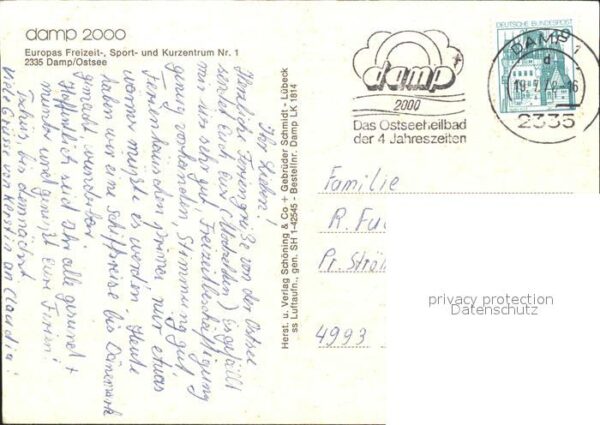 damp 2000
Europas Freizeit-, Sport- und Kurzentrum Nr. 1
2335 Damp/Ostsee
Ihr Lieben!
Herzliche Feriengrüße von der Ostsee
sendet Euch Eure
mir uns sehr gut, Freizeitbeschäftigung
genug vorhanden, Stimmung gut,
Ferienhaus den prima, nur etwas
wärmer müßte es werden. Heute
haben wir eine Schiffsreise bis Dänemark
gemacht, wunderbar.
Hoffentlich seid Ihr alle gesund +
munter und genießt Eure Ferien!
Tschüs bis demnächst
Viele Grüsse von Kerstin an Claudia!
Herst. u. Verlag Schöning & Co + Gebrüder Schmidt - Lübeck
ss Luftaufn., gen. SH 1-42545 - Bestellnr. Damp LK 1814
damp
2000
Das Ostseeheilbad
der 4 Jahreszeiten
DEUTSCHE BUNDESPOST
DAMP 1
d
2335
Familie
R. Fu
Pr. Strö
4993
privacy protection
Datenschutz